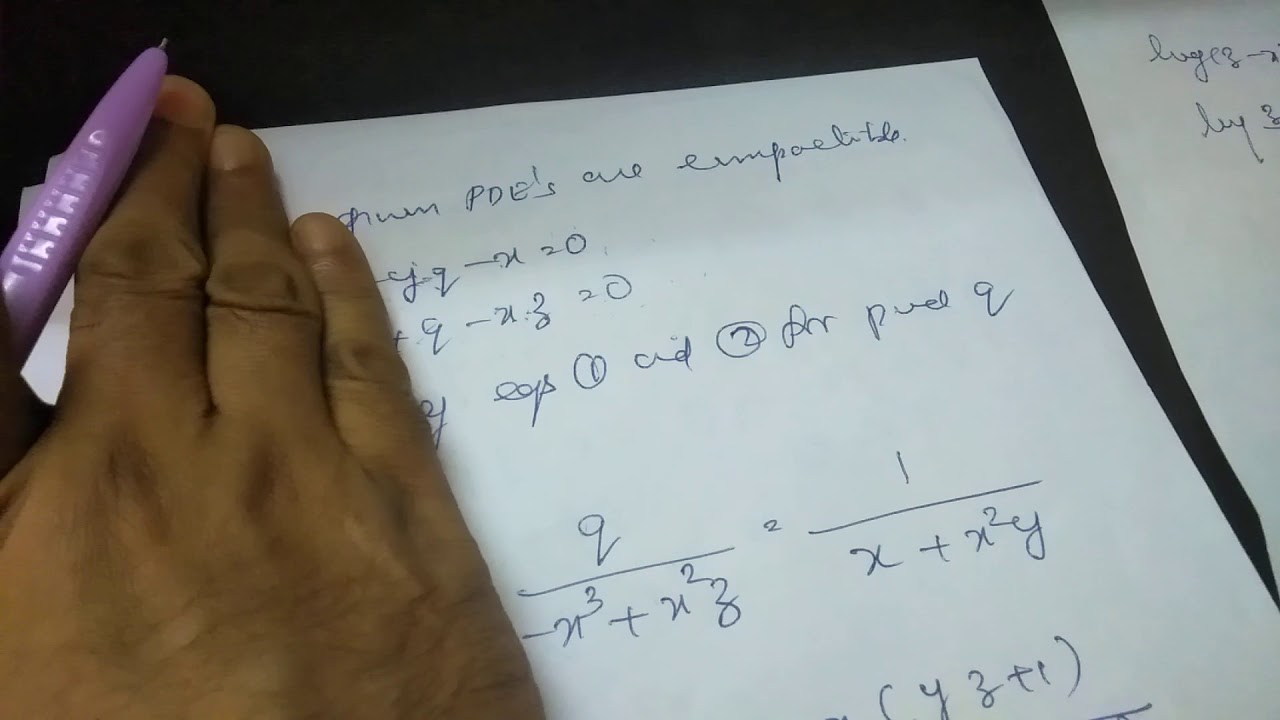 given PDE's are compactible.
-yq - x = 0
+ q - xz = 0
eqs ① and ② for p and q
q / -x³ + x²z = 1 / x + x²y
(yz+1)
log(z-x
log z